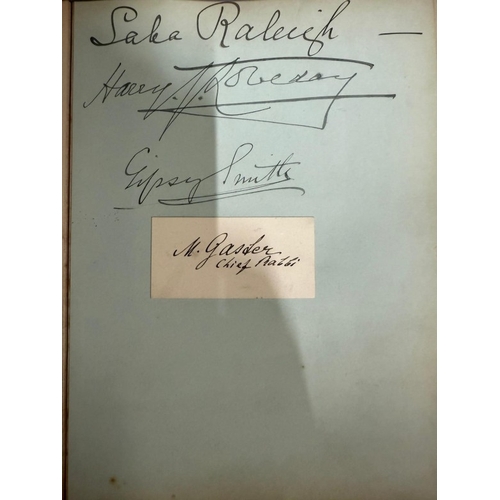 Saba Raleigh —
Harry J. Loveday
Gipsy Smith
M. Gaster
Chief Rabbi